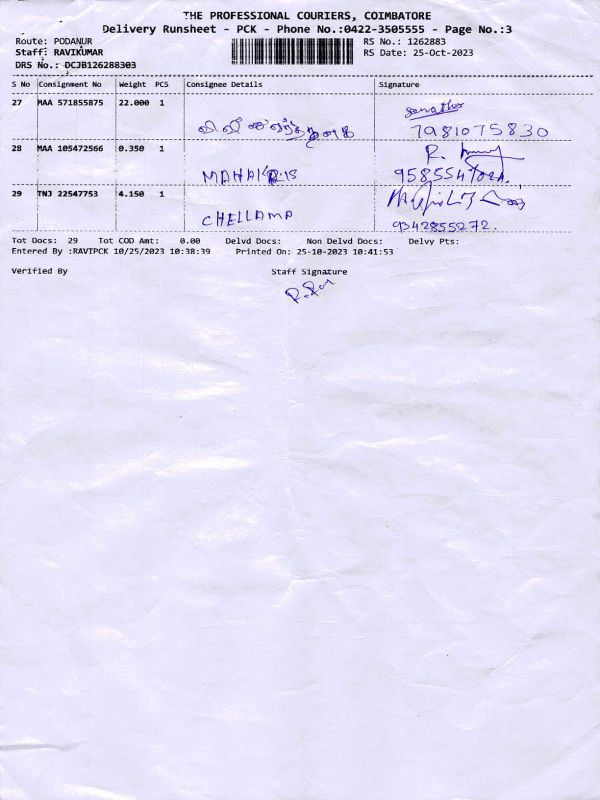 THE PROFESSIONAL COURIERS, COIMBATORE
Delivery Runsheet - PCK - Phone No.:0422-3505555 - Page No.:3
Route: PODANUR RS No.: 1262883
Staff: RAVIKUMAR RS Date: 25-Oct-2023
DRS No.: DCJB126288303
S No Consignment No Weight PCS Consignee Details Signature
27 MAA 571855875 22.000 1
7981075830
28 MAA 105472566 0.350 1 R.
29 TNJ 22547753 4.150 1 CHELLAMA
9342855272.
Tot Docs: 29 Tot COD Amt: 0.00 Delvd Docs: Non Delvd Docs: Delvy Pts:
Entered By :RAVIPCK 10/25/2023 10:38:39 Printed On: 25-10-2023 10:41:53
Verified By Staff Signature